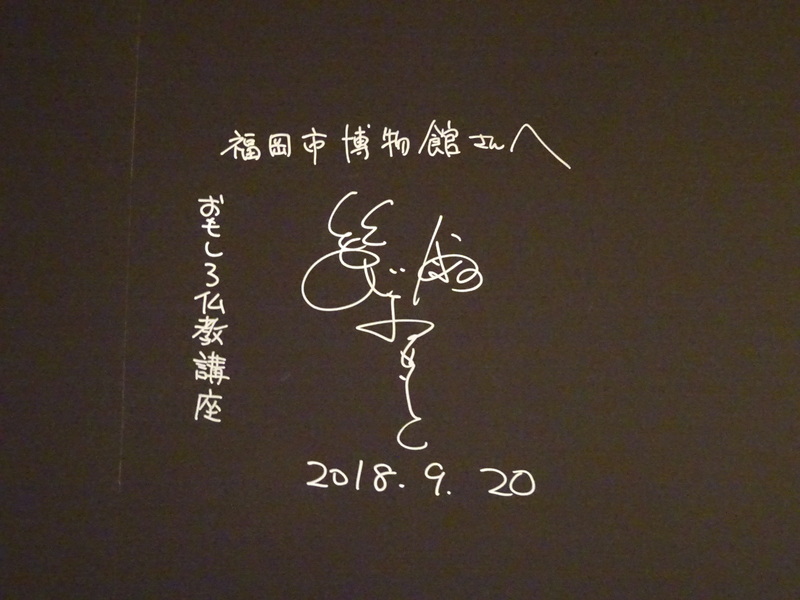 福岡市博物館さんへ
おもしろ仏教講座
2018.9.20